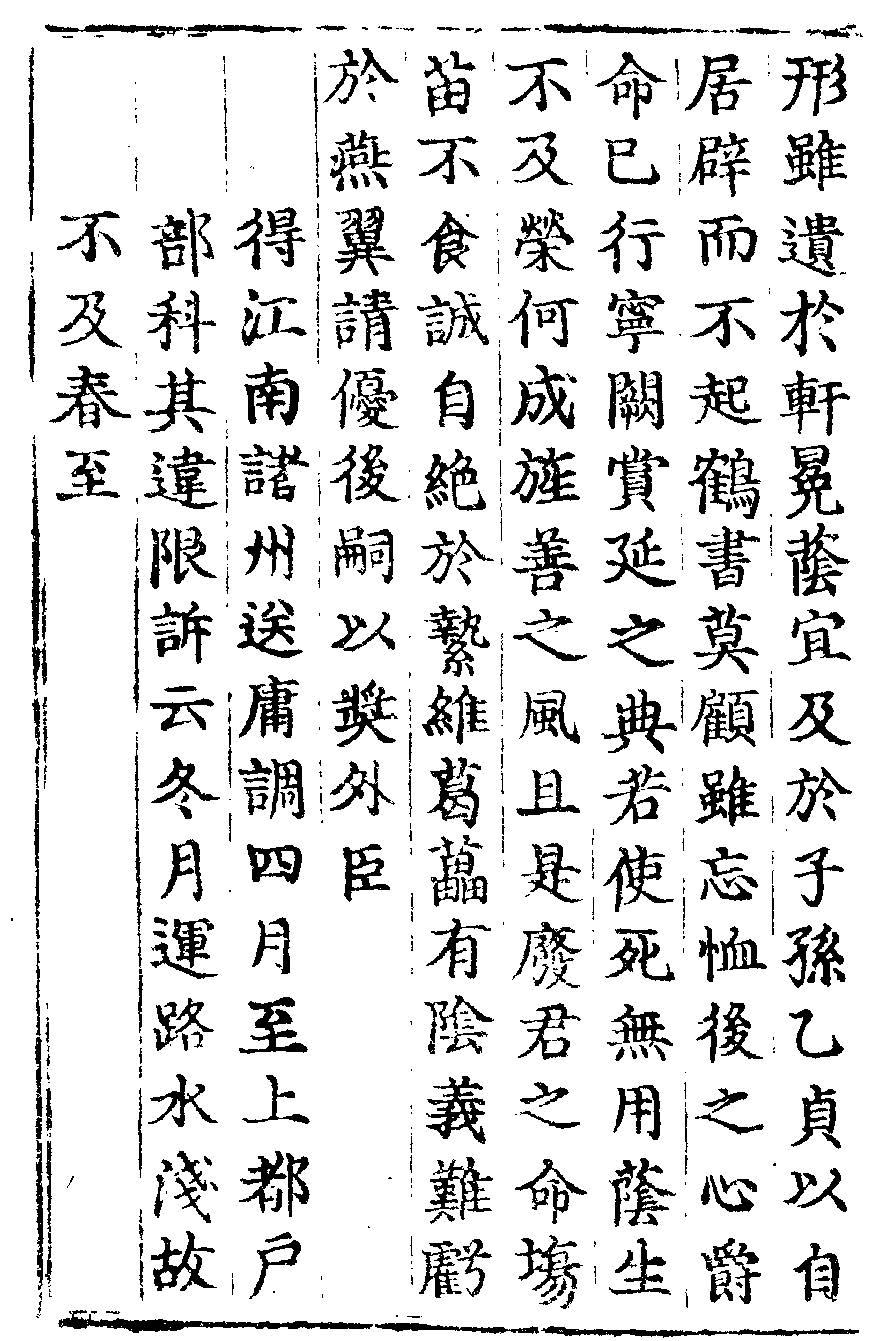 形雖遺於軒冕蔭宜及於子孫乙貞以自
居辟而不起鶴書莫顧雖忘恤後之心爵
命已行寧闕賞延之典若使死無用蔭生
不及榮何成旌善之風且是廢君之命塲
苗不食誠自絶於縶維葛藟有陰義難虧
於燕翼請優後嗣以奬外臣
得江南諸州送庸調四月至上都户
部科其違限訴云冬月運路水淺故
不及春至